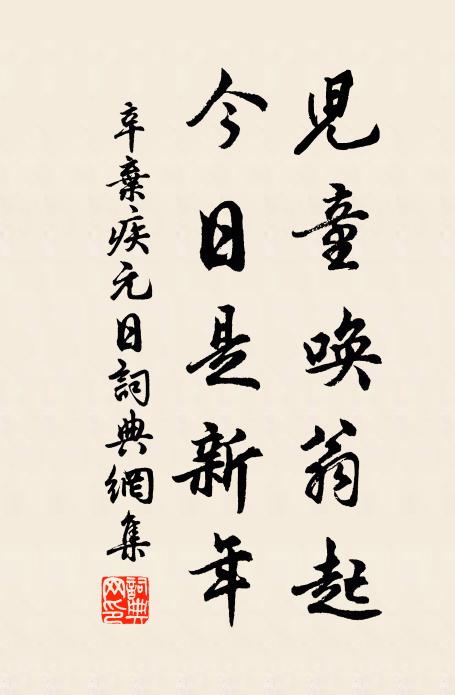 兒童喚翁起
今日是新年
辛棄疾元日詞典網集
詞典網印